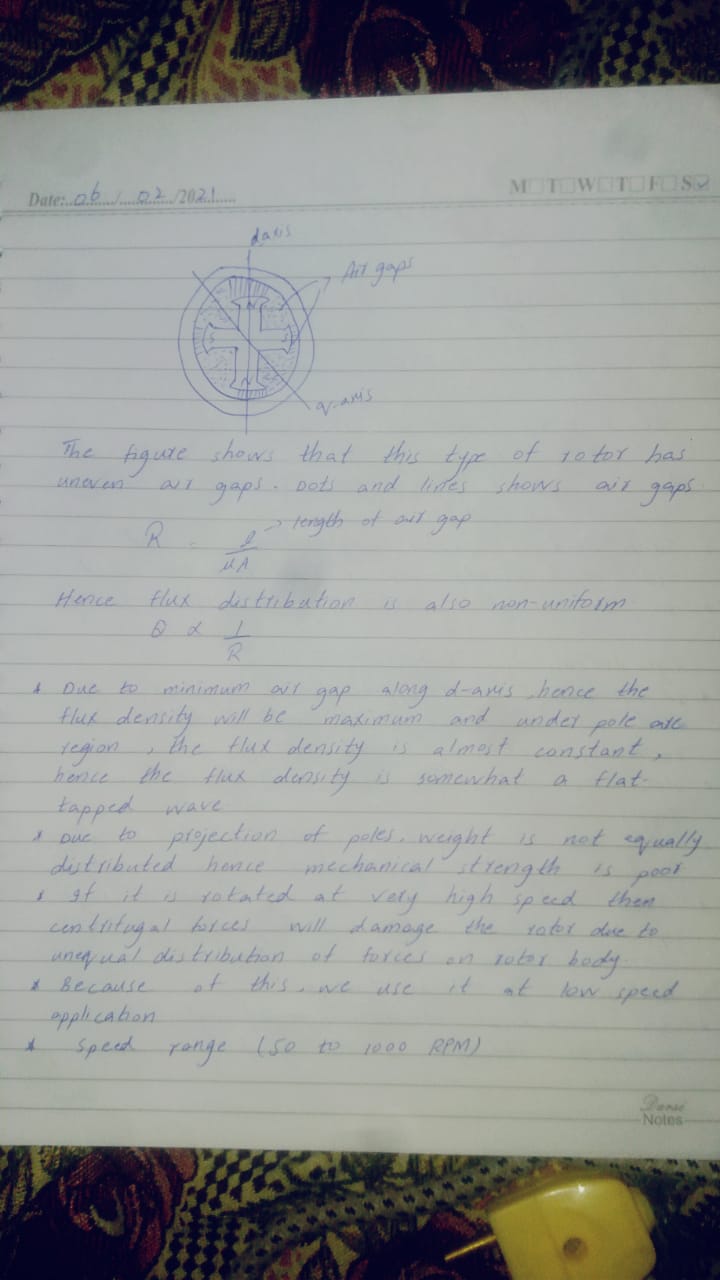 Date:..06../....02../2021.....
M T W T F S
d axis
Air gaps
N
S
S
N
q-axis
The figure shows that this type of rotor has
uneven air gaps. Dots and lines shows air gaps
R = l/μA -> length of air gap
Hence flux distribution is also non-uniform
Q ∝ 1/R
* Due to minimum air gap along d-axis, hence the
flux density will be maximum and under pole arc
region, the flux density is almost constant,
hence the flux density is somewhat a flat-
tapped wave
* Due to projection of poles, weight is not equally
distributed hence mechanical strength is poor
* If it is rotated at very high speed then
centrifugal forces will damage the rotor due to
unequal distribution of forces on rotor body.
* Because of this, we use it at low speed
application
* Speed range (50 to 1000 RPM)
Danse
Notes